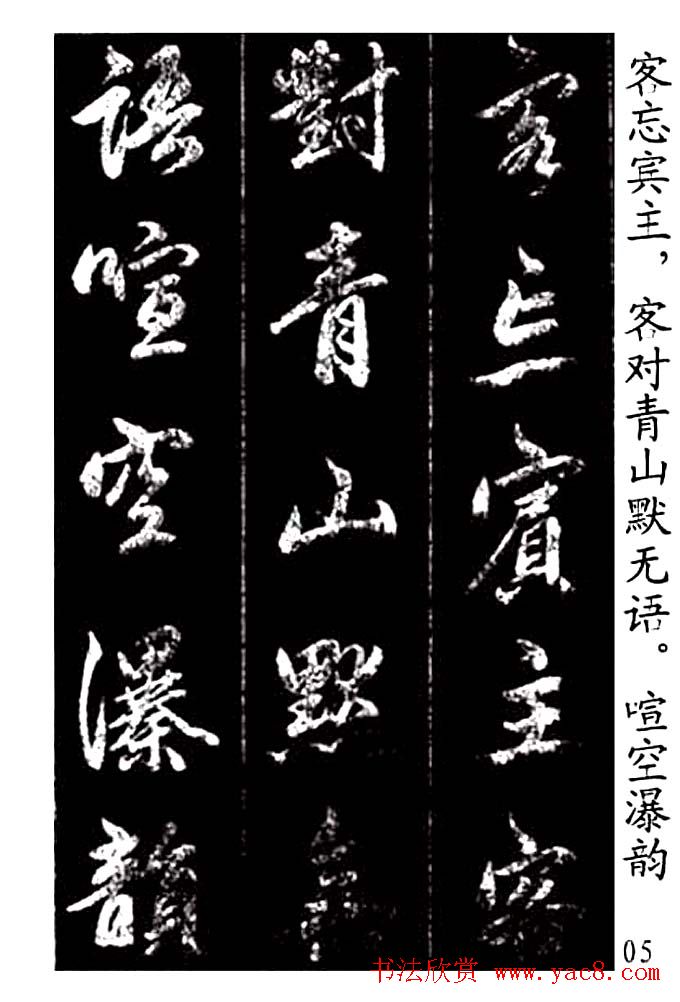 客忘賓主客
對青山默無
語喧空瀑韻
客忘宾主，客对青山默无语。 喧空瀑韵
05
书法欣赏 www.yac8.com